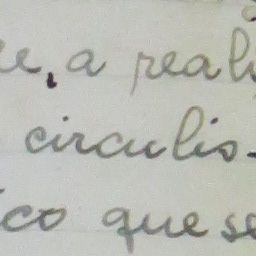 e, a reali
circulis-
ico que se